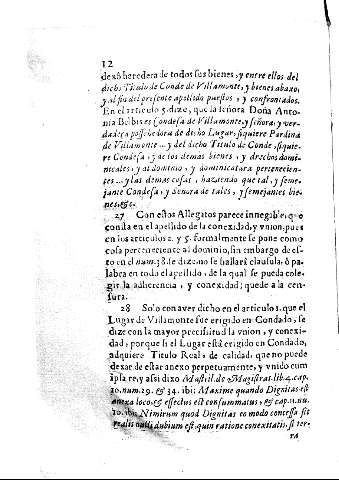 12
dexò heredera de todos sus bienes, y entre ellos del
dicho Titulo de Conde de Villamonte, y bienes abaxo,
y al fin del presente apellido puestos, y confrontados.
En el articulo 5. dize, que la señora Doña Anto-
nia Belbis es Condesa de Villamonte, y señora, y ver-
dadera possehedora de dicho Lugar, siquiere Pardina
de Villamonte... y del dicho Titulo de Conde, siquie-
re Condesa, y de los demas bienes, y drechos domi-
nicales, y al dominio, y dominicatura pertenecien-
tes... y las demas cosas, haziendo que tal, y seme-
jante Condesa, y Señora de tales, y semejantes bie-
nes, &c.
27 Con estos Allegatos parece innegable, que
consta en el apellido de la conexidad, y vnion, pues
en los articulos 2. y 5. formalmente se pone como
cosa perteneciente al dominio, sin embargo de es-
to en el num. 38. se dize, no se hallarà clausula, ò pa-
labra en todo el apellido, de la qual se pueda cole-
gir la adherencia, y conexidad; quede a la cen-
sura.
28 Solo con aver dicho en el articulo 2. que el
Lugar de Villamonte fue erigido en Condado, se
dize con la mayor precissitud la vnion, y conexi-
dad, porque si el Lugar està erigido en Condado,
adquiere Titulo Real, de calidad, que no puede
dexar de estar anexo perpetuamente, y vnido cum
ipsa re, y assi dixo Mastril. de Magistrat. lib. 4. cap.
10. num. 29. & 34. ibi: Maxime quando Dignitas est
anexa loco, & effectus est consummatus, & cap. 11. nu.
10. ibi: Nimirum quod Dignitas eo modo concessa sit
realis nulli dubium est, quin ratione conexitatis sit ter-
ra